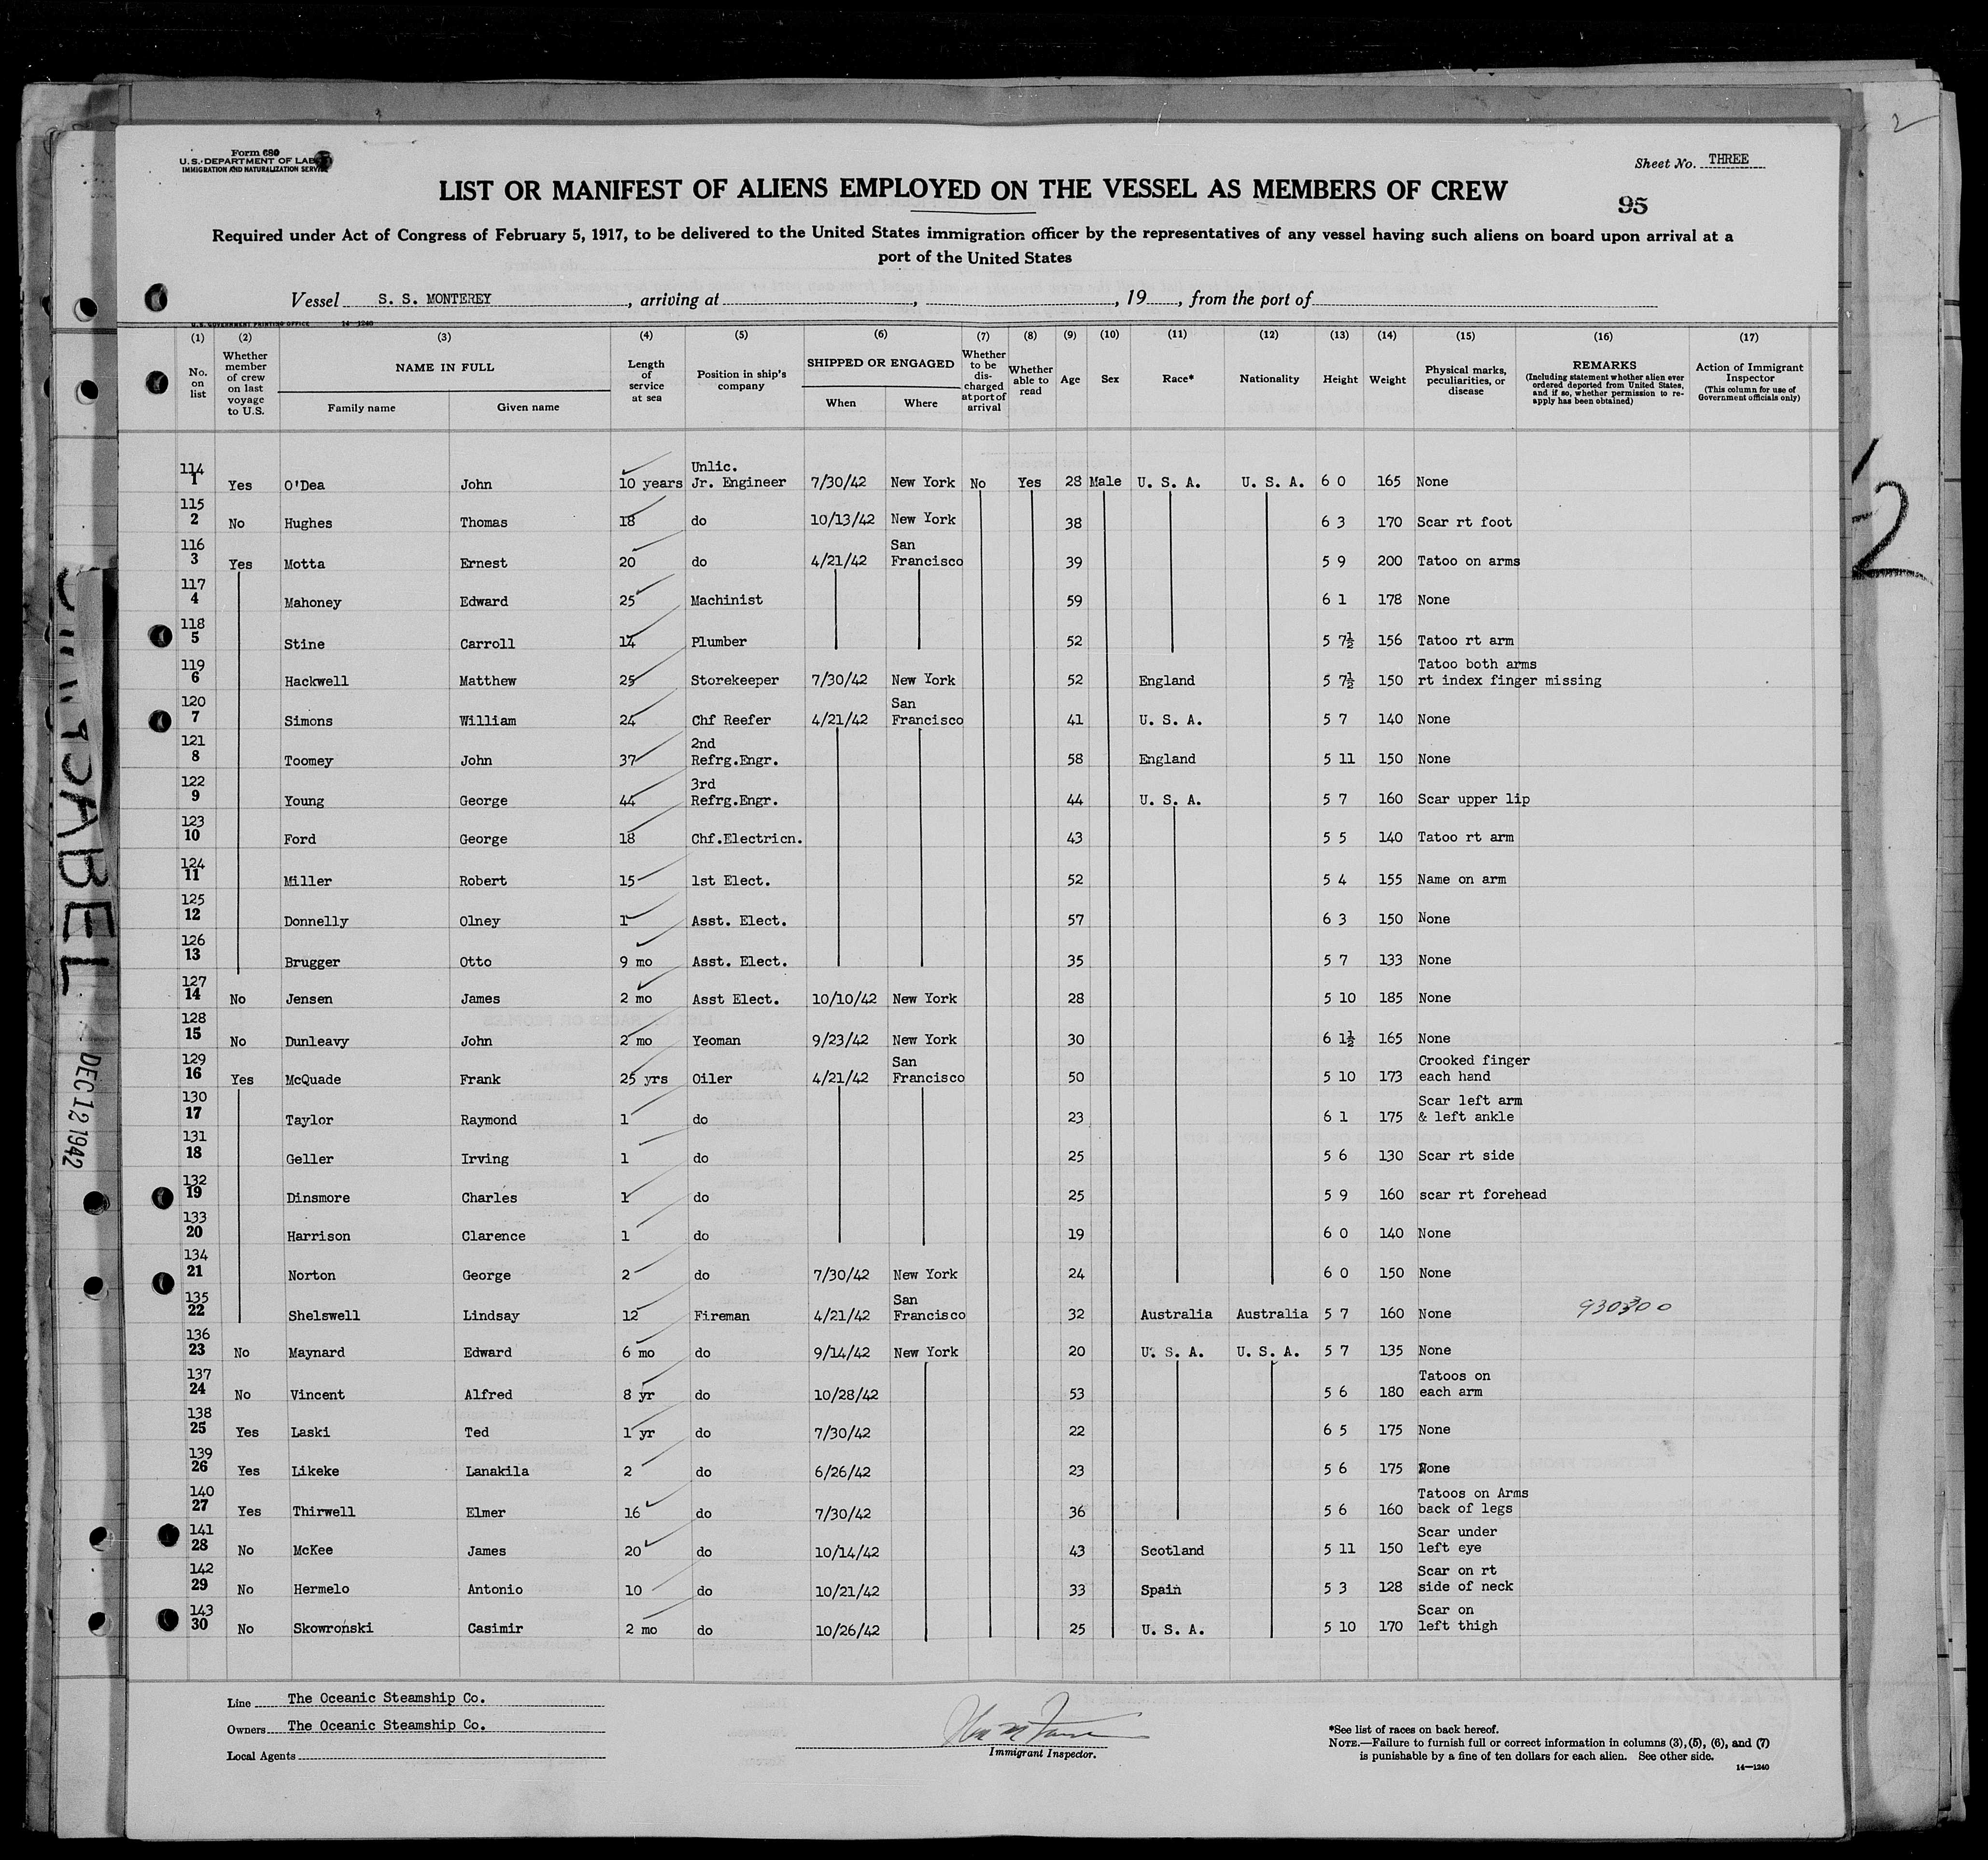 Form 680
U.S. DEPARTMENT OF LABOR
IMMIGRATION AND NATURALIZATION SERVICE
Sheet No. THREE
LIST OR MANIFEST OF ALIENS EMPLOYED ON THE VESSEL AS MEMBERS OF CREW
95
Required under Act of Congress of February 5, 1917, to be delivered to the United States immigration officer by the representatives of any vessel having such aliens on board upon arrival at a
port of the United States
Vessel S. S. MONTEREY, arriving at , , 19 , from the port of
U.S. GOVERNMENT PRINTING OFFICE 14—1240
(1) (2) (3) (4) (5) (6) (7) (8) (9) (10) (11) (12) (13) (14) (15) (16) (17)
No. on list
Whether member of crew on last voyage to U.S.
NAME IN FULL
Family name Given name
Length of service at sea
Position in ship's company
SHIPPED OR ENGAGED
When Where
Whether to be discharged at port of arrival
Whether able to read
Age
Sex
Race*
Nationality
Height
Weight
Physical marks, peculiarities, or disease
REMARKS
(Including statement whether alien ever ordered deported from United States, and if so, whether permission to reapply has been obtained)
Action of Immigrant Inspector
(This column for use of Government officials only)
114 1 Yes O'Dea John 10 years Unlic. Jr. Engineer 7/30/42 New York No Yes 28 Male U. S. A. U. S. A. 6 0 165 None
115 2 No Hughes Thomas 18 do 10/13/42 New York 38 6 3 170 Scar rt foot
116 3 Yes Motta Ernest 20 do 4/21/42 San Francisco 39 5 9 200 Tatoo on arms
117 4 Mahoney Edward 25 Machinist 59 6 1 178 None
118 5 Stine Carroll 14 Plumber 52 5 7½ 156 Tatoo rt arm
119 6 Hackwell Matthew 25 Storekeeper 7/30/42 New York 52 England 5 7½ 150 Tatoo both arms rt index finger missing
120 7 Simons William 24 Chf Reefer 4/21/42 San Francisco 41 U. S. A. 5 7 140 None
121 8 Toomey John 37 2nd Refrg.Engr. 58 England 5 11 150 None
122 9 Young George 44 3rd Refrg.Engr. 44 U. S. A. 5 7 160 Scar upper lip
123 10 Ford George 18 Chf.Electricn. 43 5 5 140 Tatoo rt arm
124 11 Miller Robert 15 1st Elect. 52 5 4 155 Name on arm
125 12 Donnelly Olney 1 Asst. Elect. 57 6 3 150 None
126 13 Brugger Otto 9 mo Asst. Elect. 35 5 7 133 None
127 14 No Jensen James 2 mo Asst Elect. 10/10/42 New York 28 5 10 185 None
128 15 No Dunleavy John 2 mo Yeoman 9/23/42 New York 30 6 1½ 165 None
129 16 Yes McQuade Frank 25 yrs Oiler 4/21/42 San Francisco 50 5 10 173 Crooked finger each hand
130 17 Taylor Raymond 1 do 23 6 1 175 Scar left arm & left ankle
131 18 Geller Irving 1 do 25 5 6 130 Scar rt side
132 19 Dinsmore Charles 1 do 25 5 9 160 scar rt forehead
133 20 Harrison Clarence 1 do 19 6 0 140 None
134 21 Norton George 2 do 7/30/42 New York 24 6 0 150 None
135 22 Shelswell Lindsay 12 Fireman 4/21/42 San Francisco 32 Australia Australia 5 7 160 None
136 23 No Maynard Edward 6 mo do 9/14/42 New York 20 U. S. A. U. S. A. 5 7 135 None
137 24 No Vincent Alfred 8 yr do 10/28/42 53 5 6 180 Tatoos on each arm
138 25 Yes Laski Ted 1 yr do 7/30/42 22 6 5 175 None
139 26 Yes Likeke Lanakila 2 do 6/26/42 23 5 6 175 None
140 27 Yes Thirwell Elmer 16 do 7/30/42 36 5 6 160 Tatoos on Arms back of legs
141 28 No McKee James 20 do 10/14/42 43 Scotland 5 11 150 Scar under left eye
142 29 No Hermelo Antonio 10 do 10/21/42 33 Spain 5 3 128 Scar on rt side of neck
143 30 No Skowronski Casimir 2 mo do 10/26/42 25 U. S. A. 5 10 170 Scar on left thigh
Line The Oceanic Steamship Co.
Owners The Oceanic Steamship Co.
Local Agents
Immigrant Inspector.
*See list of races on back hereof.
NOTE.—Failure to furnish full or correct information in columns (3), (5), (6), and (7)
is punishable by a fine of ten dollars for each alien. See other side.
14—1240
DEC 12 1942
2
2